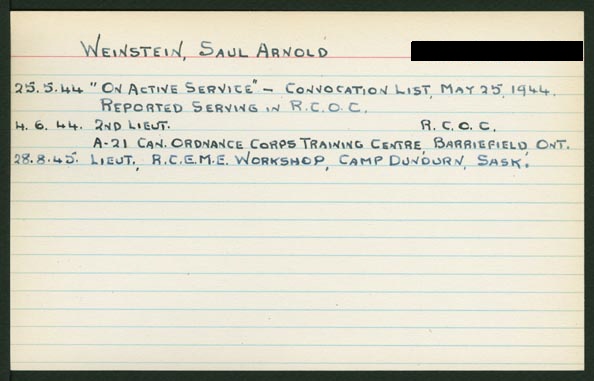 WEINSTEIN, SAUL ARNOLD
25.5.44 "ON ACTIVE SERVICE" - CONVOCATION LIST, MAY 25, 1944.
REPORTED SERVING IN R.C.O.C.
4.6.44. 2ND LIEUT. R.C.O.C.
A-21 CAN. ORDNANCE CORPS TRAINING CENTRE, BARRIEFIELD, ONT.
28.8.45. LIEUT., R.C.E.M.E. WORKSHOP, CAMP DUNDURN, SASK.